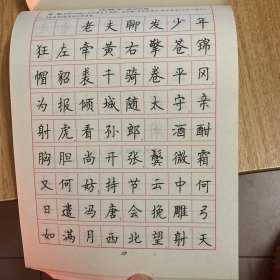 老夫聊发少年
狂左牵黄右擎苍锦
帽貂裘千骑卷平冈
为报倾城随太守亲
射虎看孙郎酒酣
胸胆尚开张鬓微霜
又何妨持节云中何
日遣冯唐会挽雕弓
如满月西北望射天